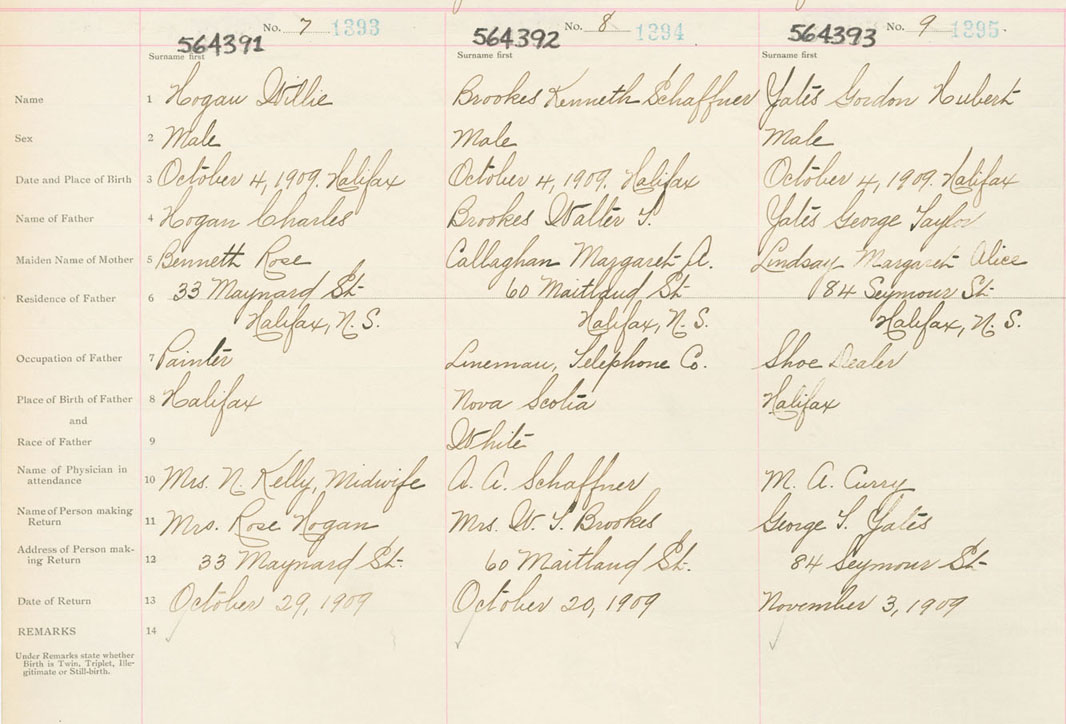 No. 7 1393 No. 8 1394 No. 9 1395
564391 564392 564393
Surname first Surname first Surname first
Name 1 Hogan Willie Brookes Kenneth Schaffner Yates Gordon Hubert
Sex 2 Male Male Male
Date and Place of Birth 3 October 4, 1909. Halifax October 4, 1909. Halifax October 4, 1909. Halifax
Name of Father 4 Hogan Charles Brookes Walter T. Yates George Taylor
Maiden Name of Mother 5 Bennett Rose Callaghan Margaret A. Lindsay Margaret Alice
Residence of Father 6 33 Maynard St. 60 Maitland St. 84 Seymour St.
Halifax, N. S. Halifax, N. S. Halifax, N. S.
Occupation of Father 7 Painter Lineman, Telephone Co. Shoe Dealer
Place of Birth of Father 8 Halifax Nova Scotia Halifax
and
Race of Father 9 White
Name of Physician in
attendance 10 Mrs. N. Kelly, Midwife A. A. Schaffner M. A. Curry
Name of Person making
Return 11 Mrs. Rose Hogan Mrs. W. T. Brookes George T. Yates
Address of Person mak-
ing Return 12 33 Maynard St. 60 Maitland St. 84 Seymour St.
Date of Return 13 October 29, 1909 October 20, 1909 November 3, 1909
REMARKS 14
Under Remarks state whether
Birth is Twin, Triplet, Ille-
gitimate or Still-birth.